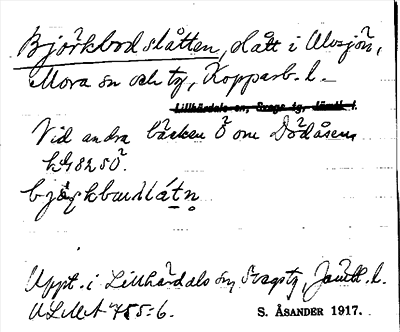 Björkbodslåtten, slått i Alvsjön,
Mora sn och tg, Kopparb. l.
Lillhärdals sn, Svegs tg, Jämtl. l.
Vid andra bäcken Ö om Dödåsen
björkbuslåtn
Uppt. i Lillhärdals sn, Svegs tg, Jämtl. l.
ULMA 755:6. S. ÅSANDER 1917.